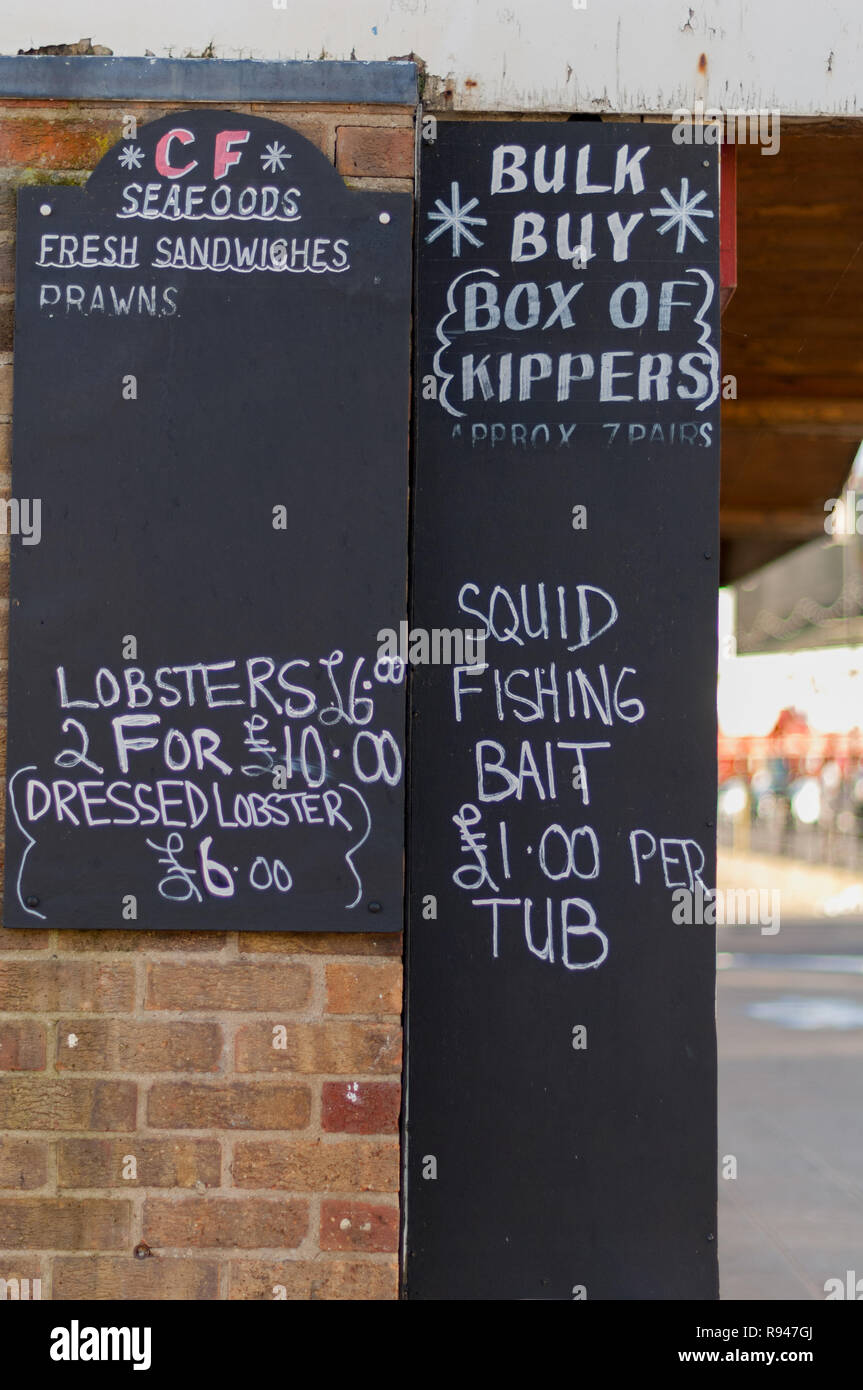 * CF *
SEAFOODS
FRESH SANDWICHES
PRAWNS
LOBSTERS £6.00
2 FOR £10.00
(DRESSED LOBSTER
£6.00)
* BULK
BUY *
{BOX OF
KIPPERS}
APPROX 7 PAIRS
SQUID
FISHING
BAIT
£1.00 PER
TUB
a alamy stock photo
R947GJ
www.alamy.com